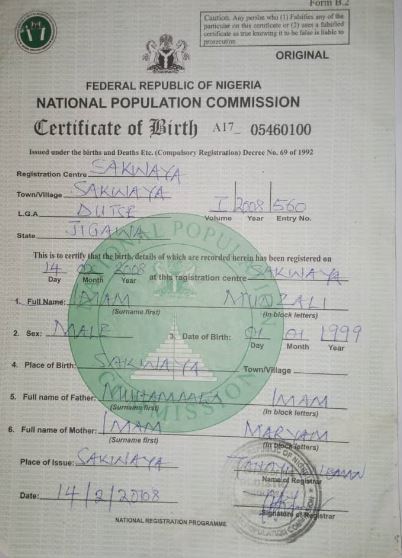 Form B.2
Caution. Any person who (1) Falsifies any of the
particular on this certificate or (2) uses a falsified
certificate as true knowing it to be false is liable to
prosecution
ORIGINAL
FEDERAL REPUBLIC OF NIGERIA
NATIONAL POPULATION COMMISSION
Certificate of Birth A17_ 05460100
Issued under the births and Deaths Etc. (Compulsory Registration) Decree No. 69 of 1992
Registration Centre SAKWAYA
Town/Village SAKWAYA
L.G.A DUTSE I 2008 560
Volume Year Entry No.
State JIGAWA
This is to certify that the birth, details of which are recorded herein has been registered on
14 02 2008 at this registration centre SAKWAYA
Day Month Year
1. Full Name: IMAM MUNZALI
(Surname first) (In block letters)
2. Sex: MALE 3. Date of Birth: 01 01 1999
Day Month Year
4. Place of Birth: SAKWAYA Town/Village
5. Full name of Father: MUHAMMAD IMAM
(Surname first) (In block letters)
6. Full name of Mother: IMAM MARYAM
(Surname first) (In block letters)
Place of Issue: SAKWAYA
Name of Registrar
Date: 14/2/2008
Signature of Registrar
NATIONAL REGISTRATION PROGRAMME